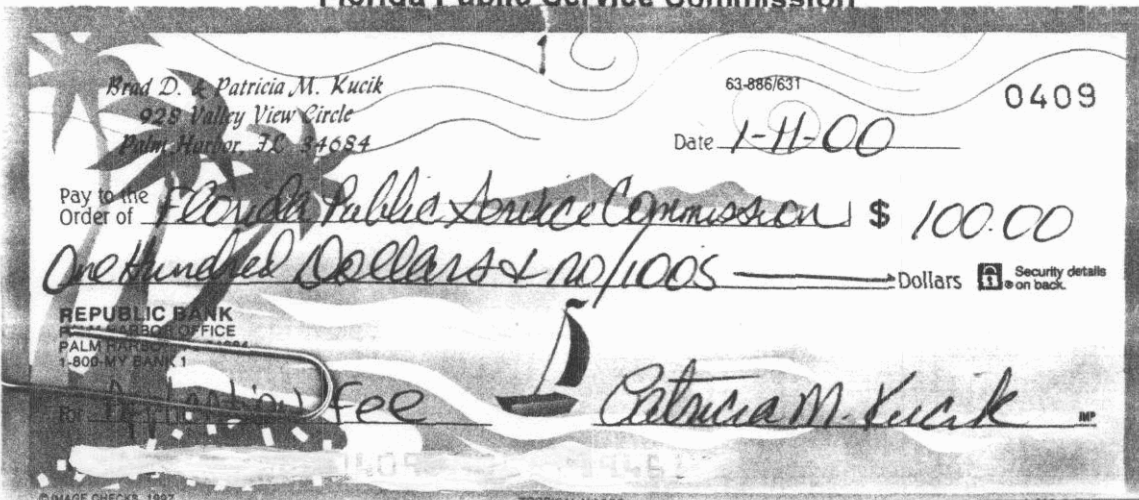 Florida Public Service Commission
1
Brad D. & Patricia M. Kucik
928 Valley View Circle
Palm Harbor, FL 34684
63-886/631
0409
Date 1-11-00
Pay to the
Order of Florida Public Service Commission $ 100.00
One Hundred Dollars & no/100s Dollars Security details
on back.
REPUBLIC BANK
PALM HARBOR OFFICE
PALM HARBOR
1-800-MY BANK 1
For Fee Patricia M. Kucik MP
© IMAGE CHECKS, 1997